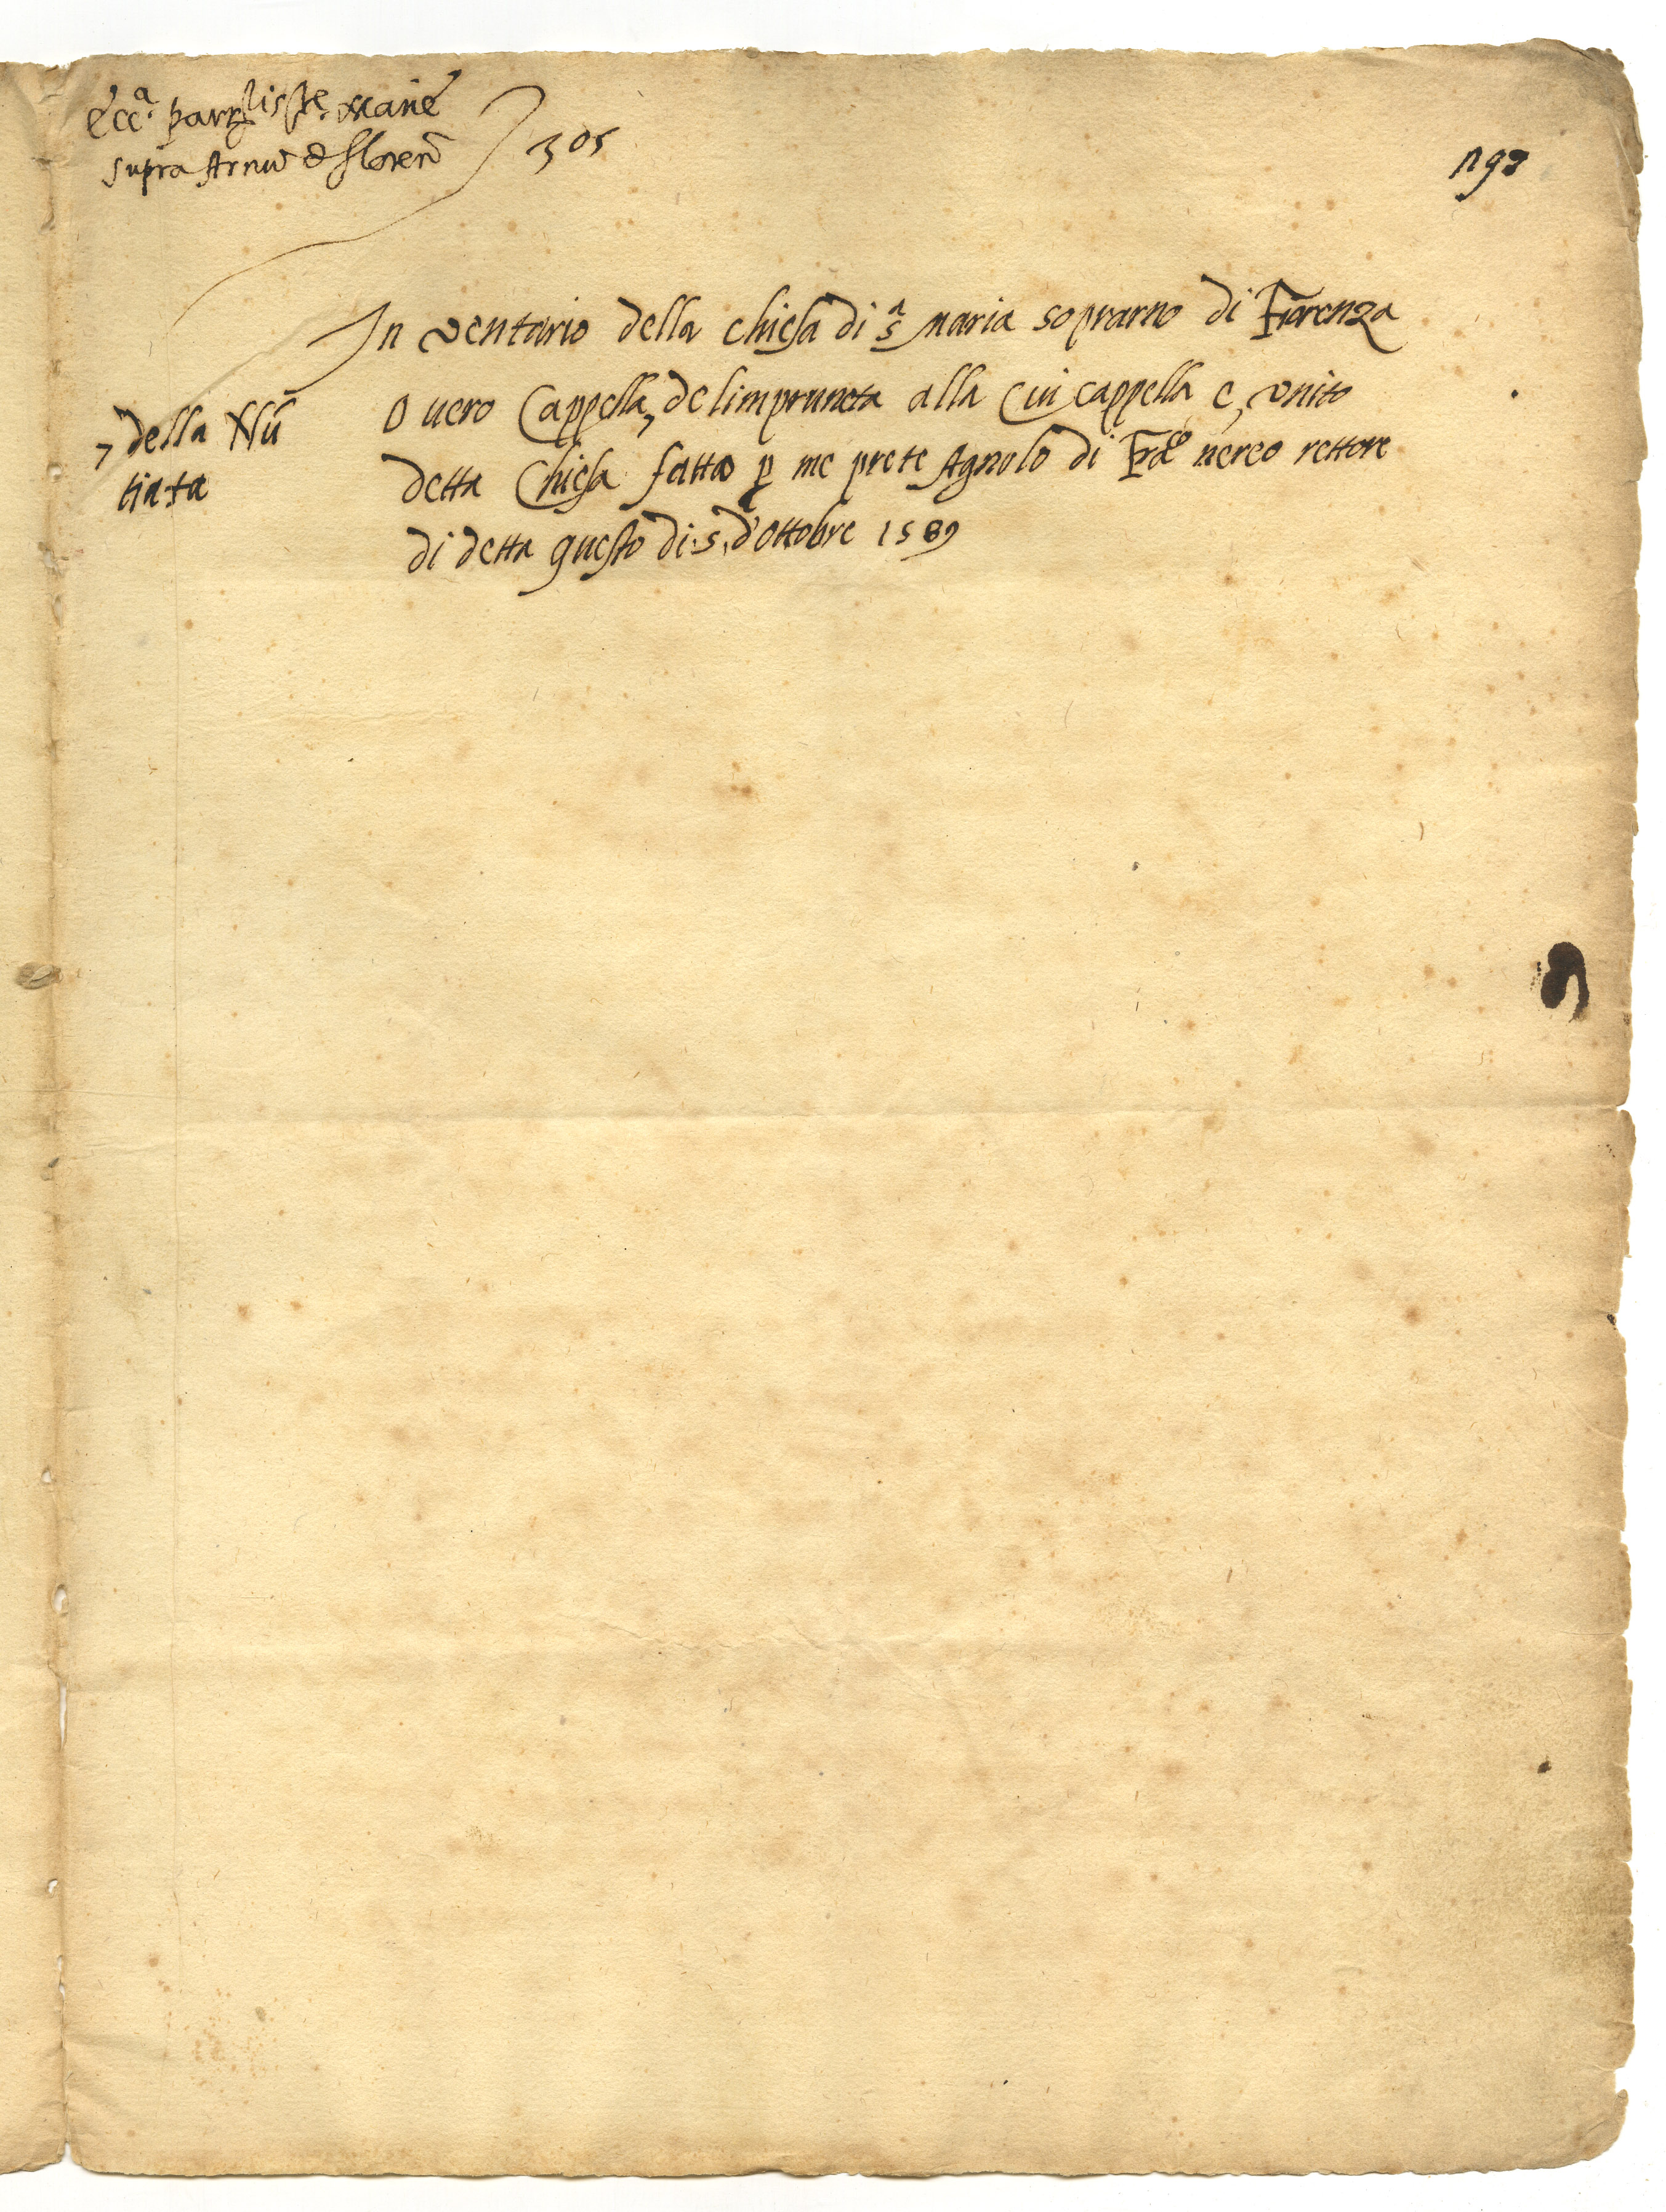 Ecc.ª parr.lis S.te Marie
supra Arnũ d Floreñ
305
198
In ventario della chiesa di s.ª maria soprarno di Fiorenza
O uero Cappella, delimpruneta alla Cui cappella e, vnito
, della Nũ
tiata
detta Chiesa fatto p me prete Agnolo di Fra.co nereo rettore
di detta questo di .5. d'Ottobre 1589